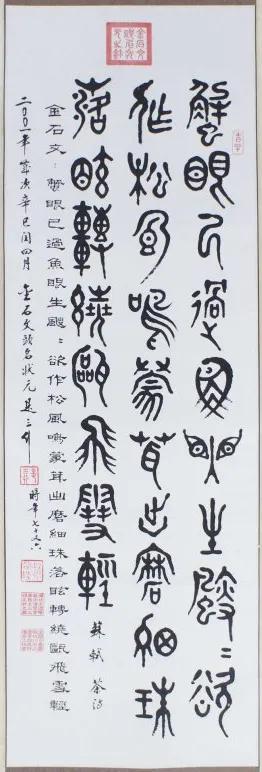 蟹眼已過魚眼生颼〻欲
作松風鳴蒙茸出磨細珠
落眩轉繞甌飛雪輕
蘇軾 茶诗
金石文：蟹眼已過魚眼生颼〻欲作松風鳴蒙茸出磨細珠落眩轉繞甌飛雪輕
二〇〇一年歲次辛巳闰四月 金石文頭名狀元
時年七十又六